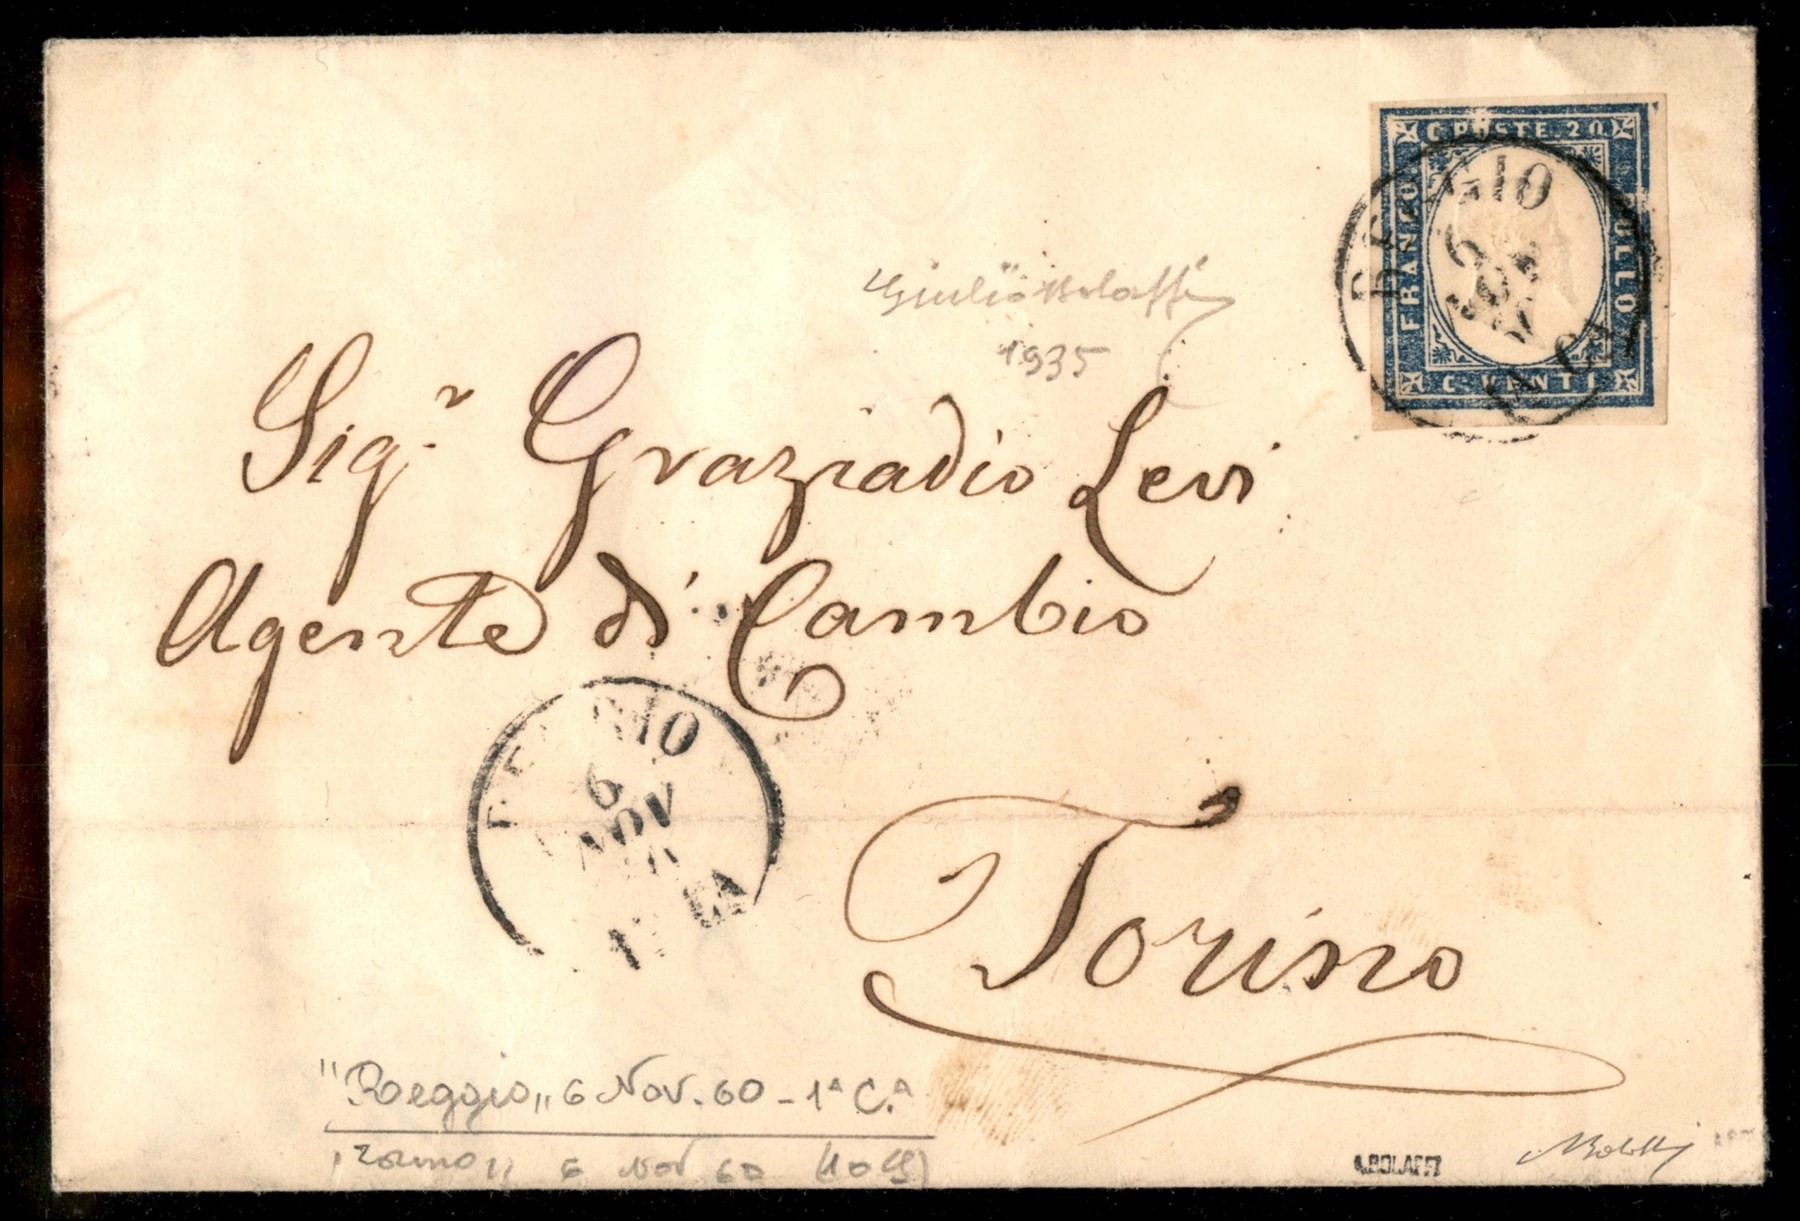 C. POSTE. 20
FRANCO
BOLLO
C. VENTI
REGGIO
6
NOV
1A CA
Giulio Bolaffi
1935
Sig.r Graziadio Levi
Agente di Cambio
REGGIO
6
NOV
1A CA
Torino
"Reggio„ 6 Nov. 60 - 1ª C.ª
Torino„ 6 Nov 60
A.BOLAFFI